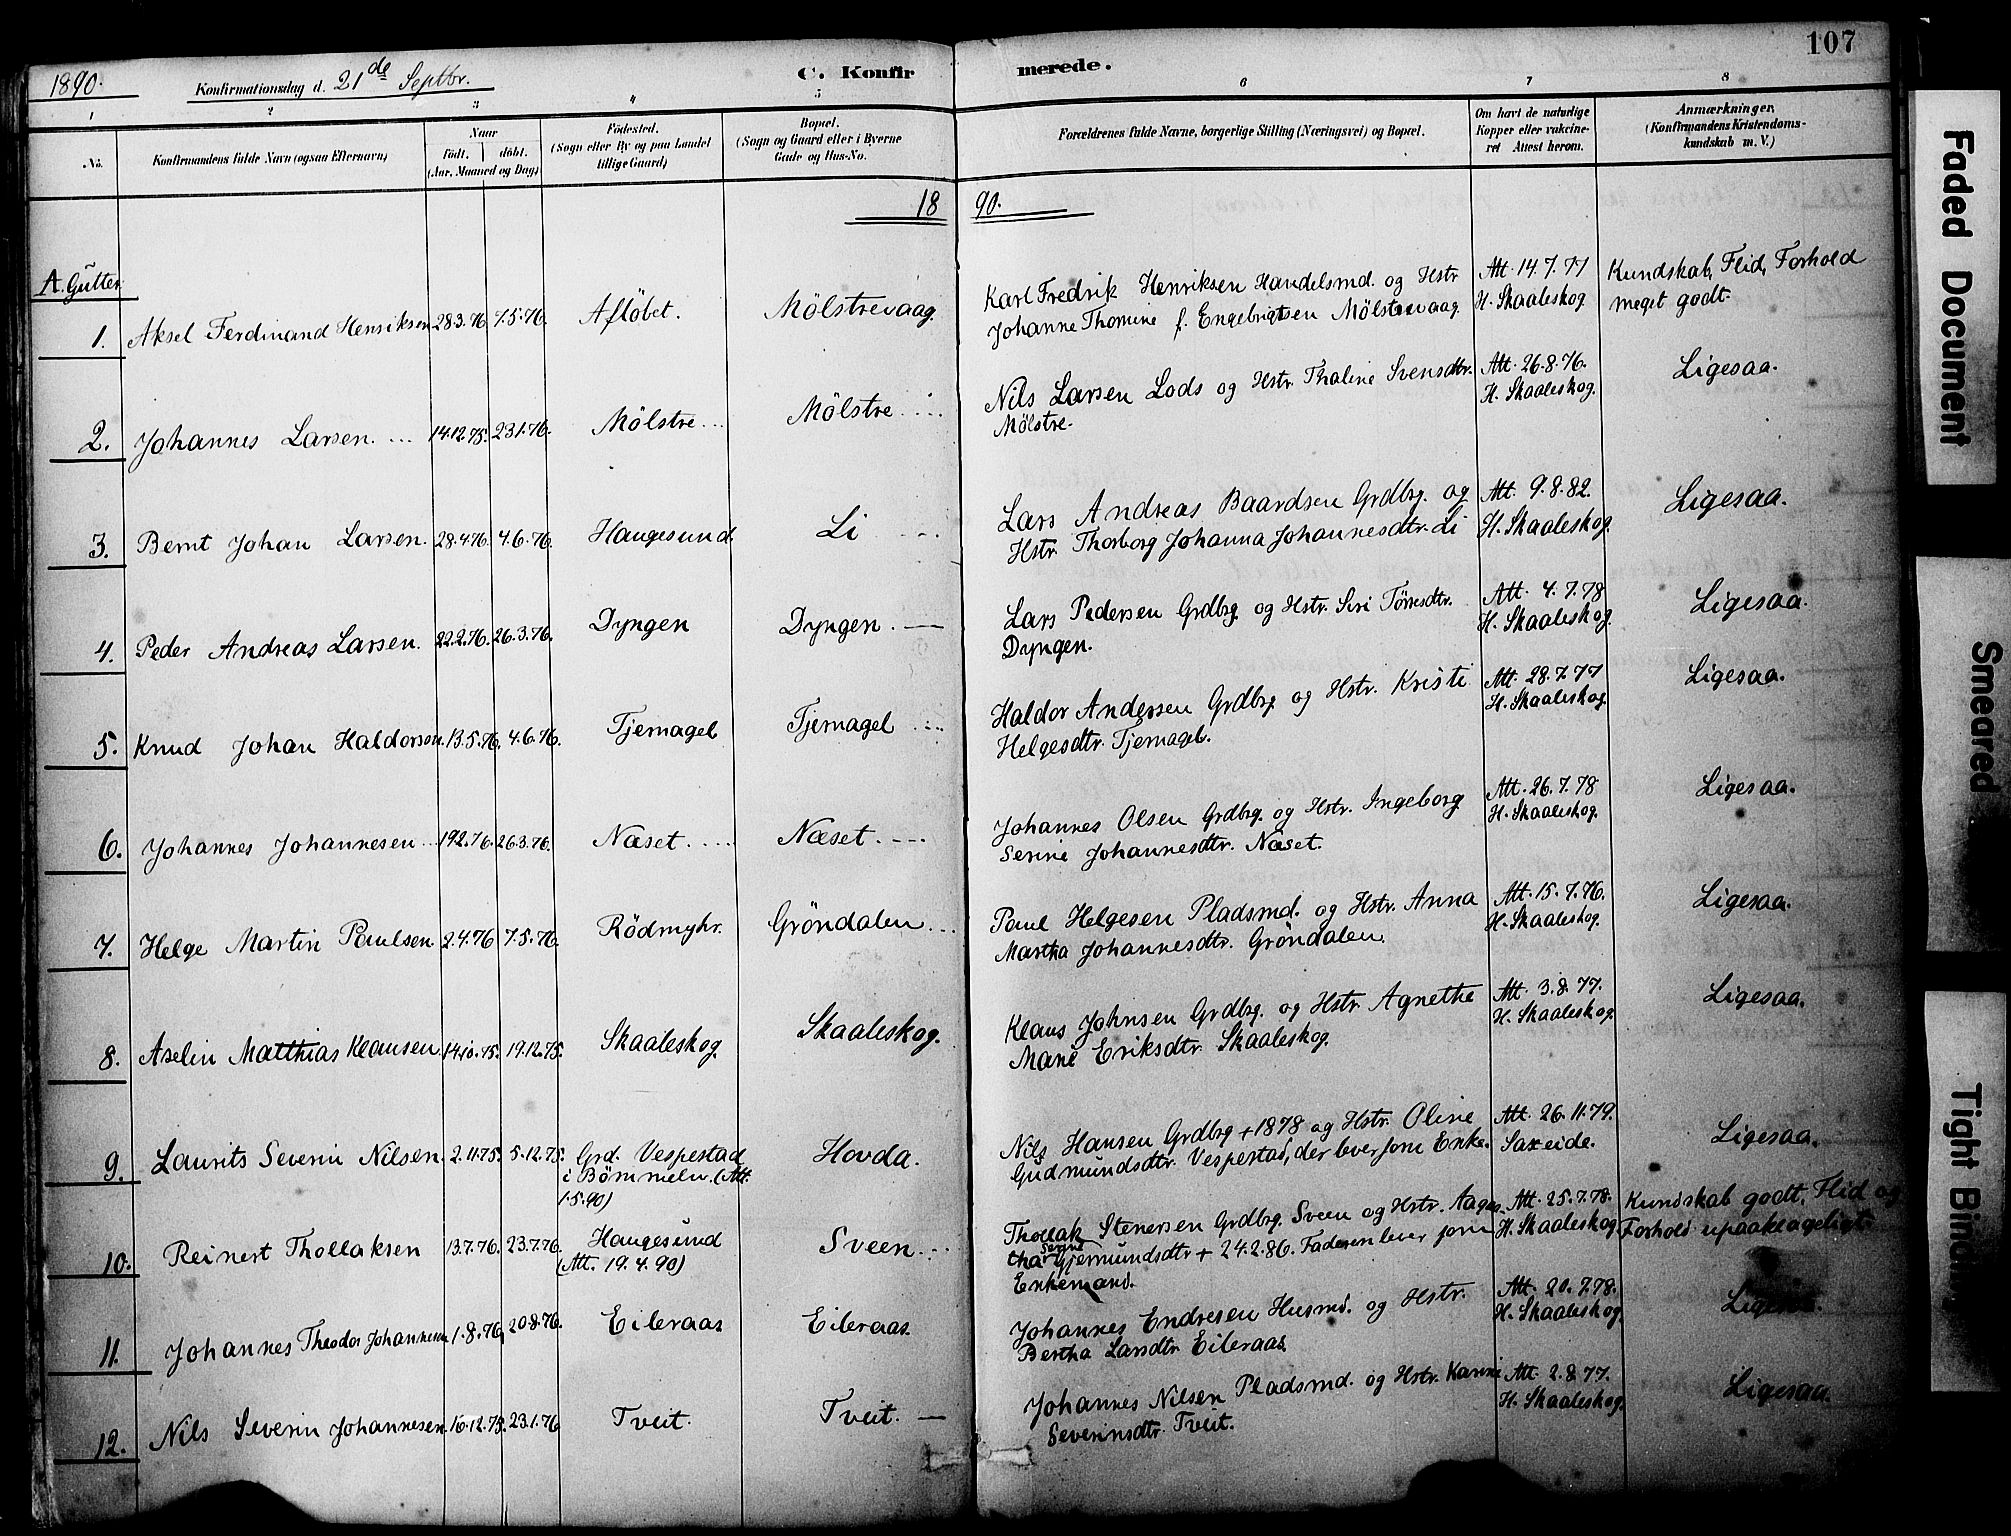 107
1890.
Konfirmationsdag d. 21de Septbr.
C. Konfirmerede.
1 2 3 4 5 6 7 8
No.
Konfirmandens fulde Navn (ogsaa Efternavn)
Naar
födt. döbt.
(Aar, Maaned og Dag)
Födested.
(Sogn eller By og paa Landet
tillige Gaard)
Bopæl.
(Sogn og Gaard eller i Byerne
Gade og Hus-No.
Forældrenes fulde Navne, borgerlige Stilling (Næringsvei) og Bopæl.
Om havt de naturlige
Kopper eller vakcine-
ret Attest herom.
Anmærkninger.
(Konfirmandens Kristendoms-
kundskab m. V.)
18 90.
A. Gutter
1. Aksel Ferdinand Henriksen 28.3.76 7.5.76. Aflöbet. Mölstrevaag.
Karl Fredrik Henriksen Handelsmd. og Hstr
Johanne Thomine f. Engebrigtsen Mölstrevaag
Att. 14.7.77
H. Skaaleskog
Kundskab, Flid, Forhold
meget godt.
2. Johannes Larsen. 14.12.75. 23.1.76. Mölstre Mölstre
Nils Larsen Lods og Hstr. Thaline Svensdtr.
Mölstre.
Att. 26.8.76.
H. Skaaleskog.
Ligesaa.
3. Bernt Johan Larsen. 28.4.76. 4.6.76. Haugesund. Li
Lars Andreas Baardsen Grdbrg. og
Hstr. Thorborg Johanna Johannesdtr. Li
Att. 9.8.82.
H. Skaaleskog.
Ligesaa.
4. Peder Andreas Larsen. 22.2.76. 26.3.76. Dyngen Dyngen.
Lars Pedersen Grdbrg. og Hstr. Siri Törresdtr.
Dyngen.
Att. 4.7.78
H. Skaaleskog.
Ligesaa.
5. Knud Johan Haldorsen. 13.5.76. 4.6.76. Tjernagel Tjernagel
Haldor Andersen Grdbrg. og Hstr. Kristi
Helgesdtr. Tjernagel.
Att. 28.7.77
H. Skaaleskog
Ligesaa.
6. Johannes Johannesen 19.2.76. 26.3.76. Næset. Næset.
Johannes Olsen Grdbrg. og Hstr. Ingeborg
Serine Johannesdtr. Næset.
Att. 26.7.78
H. Skaaleskog.
Ligesaa.
7. Helge Martin Paulsen 2.4.76 7.5.76. Rödmyhr. Gröndalen
Paul Helgesen Pladsmd. og Hstr. Anna
Martha Johannesdtr. Gröndalen.
Att. 15.7.76.
H. Skaaleskog.
Ligesaa.
8. Aselin Matthias Klausen 14.10.75. 19.12.75. Skaaleskog Skaaleskog.
Klaus Johnsen Grdbrg. og Hstr. Agnethe
Marie Eriksdtr. Skaaleskog.
Att. 3.8.77.
H. Skaaleskog.
Ligesaa.
9. Laurits Severin Nilsen. 2.11.75. 5.12.75. Grd. Vespestad
i Bömmeln. (Att.
1.5.90)
Hovda.
Nils Hansen Grdbrg + 1878 og Hstr. Oline
Gudmundsdtr. Vespestad, der lever som Enke.
Att. 26.11.79.
Saxeide.
Ligesaa.
10. Reinert Thollaksen 13.7.76. 23.7.76. Haugesund
(Att. 19.4.90)
Sveen
Thollak Stenersen Grdbrg. Sveen og Hstr. Aaga-
tha Serine Gjermundsdtr + 24.2.86. Faderen lever som
Enkemand.
Att. 25.7.78.
H. Skaaleskog.
Kundskab godt, Flid og
Forhold upaaklageligt.
11. Johannes Theodor Johannesen 1.8.76. 20.8.76. Eileraas Eileraas.
Johannes Endresen Husmd. og Hstr.
Bertha Larsdtr Eileraas.
Att. 20.7.78.
H. Skaaleskog.
Ligesaa.
12. Nils Severin Johannesen. 10.12.75. 23.1.76. Tveit. Tveit.
Johannes Nilsen Pladsmd. og Hstr. Karine
Severinsdtr. Tveit.
Att. 2.8.77.
H. Skaaleskog.
Ligesaa.
Faded Document
Smeared
Tight Binding